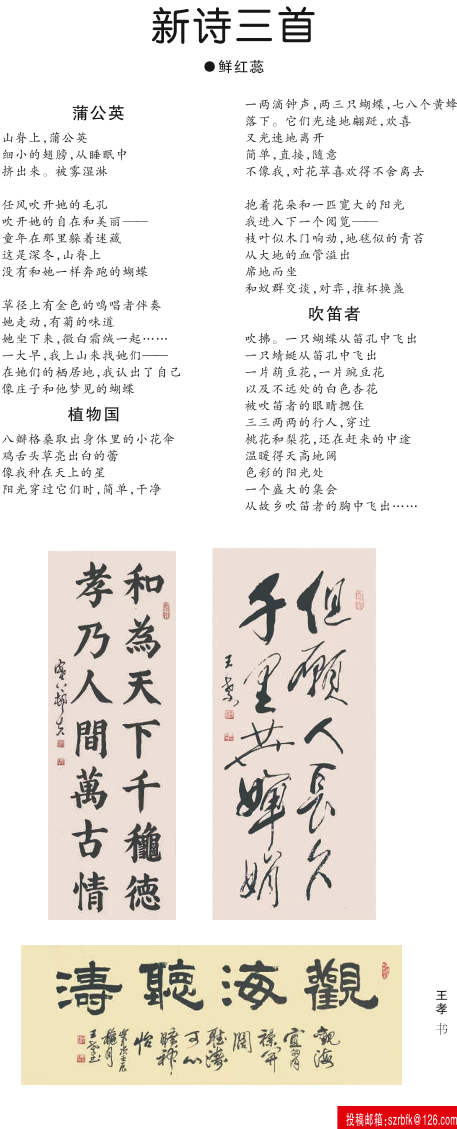 新诗三首
●鲜红蕊
蒲公英
山脊上,蒲公英
细小的翅膀,从睡眠中
挤出来。被雾湿淋
任风吹开她的毛孔
吹开她的自在和美丽——
童年在那里躲着迷藏
这是深冬,山脊上
没有和她一样奔跑的蝴蝶
草径上有金色的鸣唱者伴奏
她走动,有菊的味道
她坐下来,微白霜绒一起……
一大早,我上山来找她们——
在她们的栖居地,我认出了自己
像庄子和他梦见的蝴蝶
植物国
八瓣格桑取出身体里的小花伞
鸡舌头草亮出白的蕾
像我种在天上的星
阳光穿过它们时,简单,干净
一两滴钟声,两三只蝴蝶,七八个黄蜂
落下。它们光速地翩跹,欢喜
又光速地离开
简单,直接,随意
不像我,对花草喜欢得不舍离去
抱着花朵和一匹宽大的阳光
我进入下一个阅览——
枝叶似木门响动,地毯似的青苔
从大地的血管溢出
席地而坐
和蚁群交谈,对弈,推杯换盏
吹笛者
吹拂。一只蝴蝶从笛孔中飞出
一只蜻蜓从笛孔中飞出
一片萌豆花,一片豌豆花
以及不远处的白色杏花
被吹笛者的眼睛摁住
三三两两的行人,穿过
桃花和梨花,还在赶来的中途
温暖得天高地阔
色彩的阳光处
一个盛大的集会
从故乡吹笛者的胸中飞出……
和為天下千穐德
孝乃人間萬古情
但願人長久
千里共嬋娟
王孝
觀海聽濤
觀海
宜
襟開
闊
聽濤
可心
曠神
怡
王孝
书
投稿邮箱:szrbfk@126.com